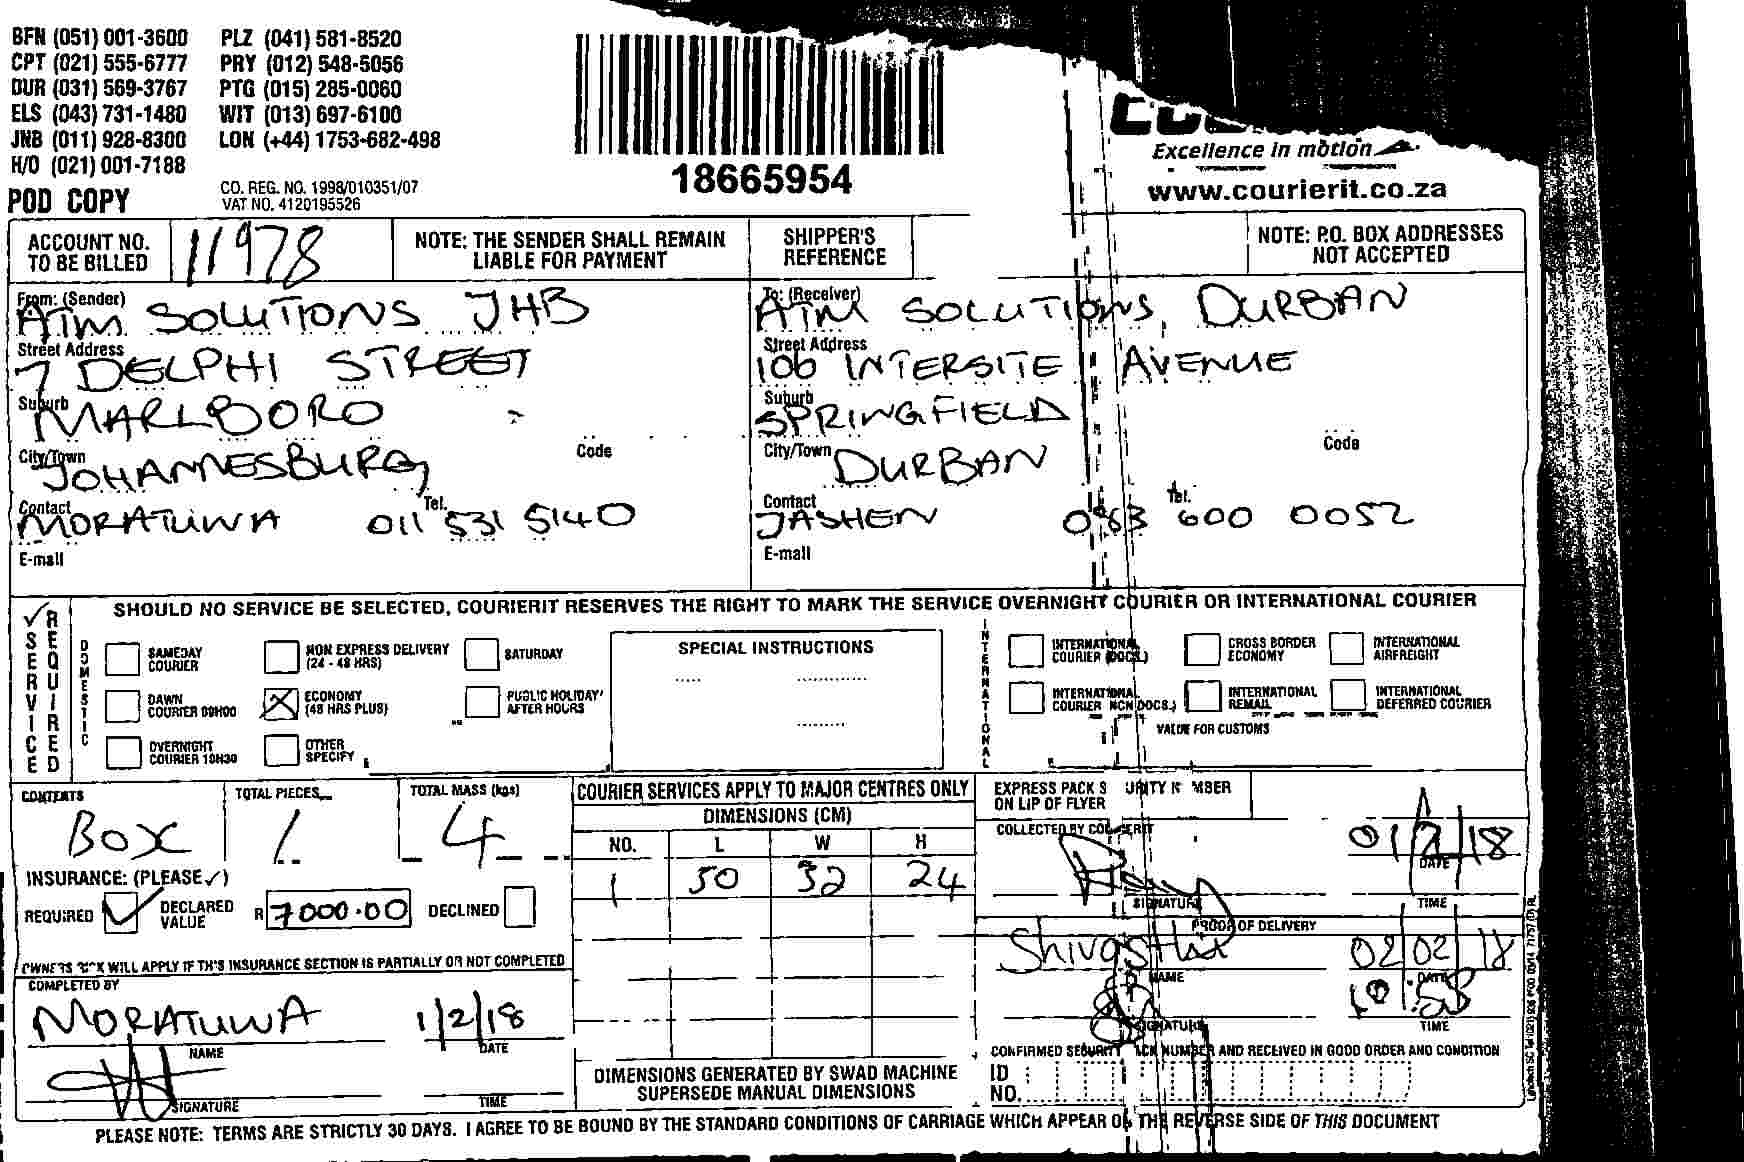 BFN (051) 001-3600 PLZ (041) 581-8520
CPT (021) 555-6777 PRY (012) 548-5056
DUR (031) 569-3767 PTG (015) 285-0060
ELS (043) 731-1480 WIT (013) 697-6100
JNB (011) 928-8300 LON (+44) 1753-682-498
H/O (021) 001-7188
POD COPY
CO. REG. NO. 1998/010351/07
VAT NO. 4120195526
18665954
Excellence in motion
www.courierit.co.za
ACCOUNT NO. TO BE BILLED 11978
NOTE: THE SENDER SHALL REMAIN LIABLE FOR PAYMENT
SHIPPER'S REFERENCE
NOTE: P.O. BOX ADDRESSES NOT ACCEPTED
From: (Sender)
ATM SOLUTIONS JHB
Street Address
7 DELPHI STREET
Suburb
MARLBORO
City/Town Code
JOHANNESBURG
Contact Tel.
MORATUWA 011 531 5140
E-mail
To: (Receiver)
ATM SOLUTIONS, DURBAN
Street Address
106 INTERSITE AVENUE
Suburb
SPRINGFIELD
City/Town Code
DURBAN
Contact Tel.
JASHEN 600 0052
E-mail
SERVICE REQUIRED
SHOULD NO SERVICE BE SELECTED, COURIERIT RESERVES THE RIGHT TO MARK THE SERVICE OVERNIGHT COURIER OR INTERNATIONAL COURIER
DOMESTIC
SAMEDAY COURIER
NON EXPRESS DELIVERY (24 - 48 HRS)
SATURDAY
DAWN COURIER 09H00
ECONOMY (48 HRS PLUS)
PUBLIC HOLIDAY/ AFTER HOURS
OVERNIGHT COURIER 10H30
OTHER SPECIFY
SPECIAL INSTRUCTIONS
INTERNATIONAL
INTERNATIONAL COURIER (DOCS.)
CROSS BORDER ECONOMY
INTERNATIONAL AIRFREIGHT
INTERNATIONAL COURIER NON DOCS.)
INTERNATIONAL REMAIL
INTERNATIONAL DEFERRED COURIER
VALUE FOR CUSTOMS
CONTENTS TOTAL PIECES TOTAL MASS (kgs)
BOX 1 4
INSURANCE: (PLEASE ✓)
REQUIRED DECLARED VALUE R 7000.00 DECLINED
WILL APPLY IF THIS INSURANCE SECTION IS PARTIALLY OR NOT COMPLETED
COMPLETED BY
MORATUWA 1/2/18
NAME DATE
SIGNATURE TIME
COURIER SERVICES APPLY TO MAJOR CENTRES ONLY
DIMENSIONS (CM)
NO. L W H
1 50 32 24
DIMENSIONS GENERATED BY SWAD MACHINE
SUPERSEDE MANUAL DIMENSIONS
EXPRESS PACK
ON LIP OF FLYER
COLLECTED BY
01/2/18
DATE
SIGNATURE TIME
PROOF OF DELIVERY
02/02/18
NAME DATE
10:58
SIGNATURE TIME
CONFIRMED SECURITY NUMBER AND RECEIVED IN GOOD ORDER AND CONDITION
ID NO.
PLEASE NOTE: TERMS ARE STRICTLY 30 DAYS. I AGREE TO BE BOUND BY THE STANDARD CONDITIONS OF CARRIAGE WHICH APPEAR ON THE REVERSE SIDE OF THIS DOCUMENT